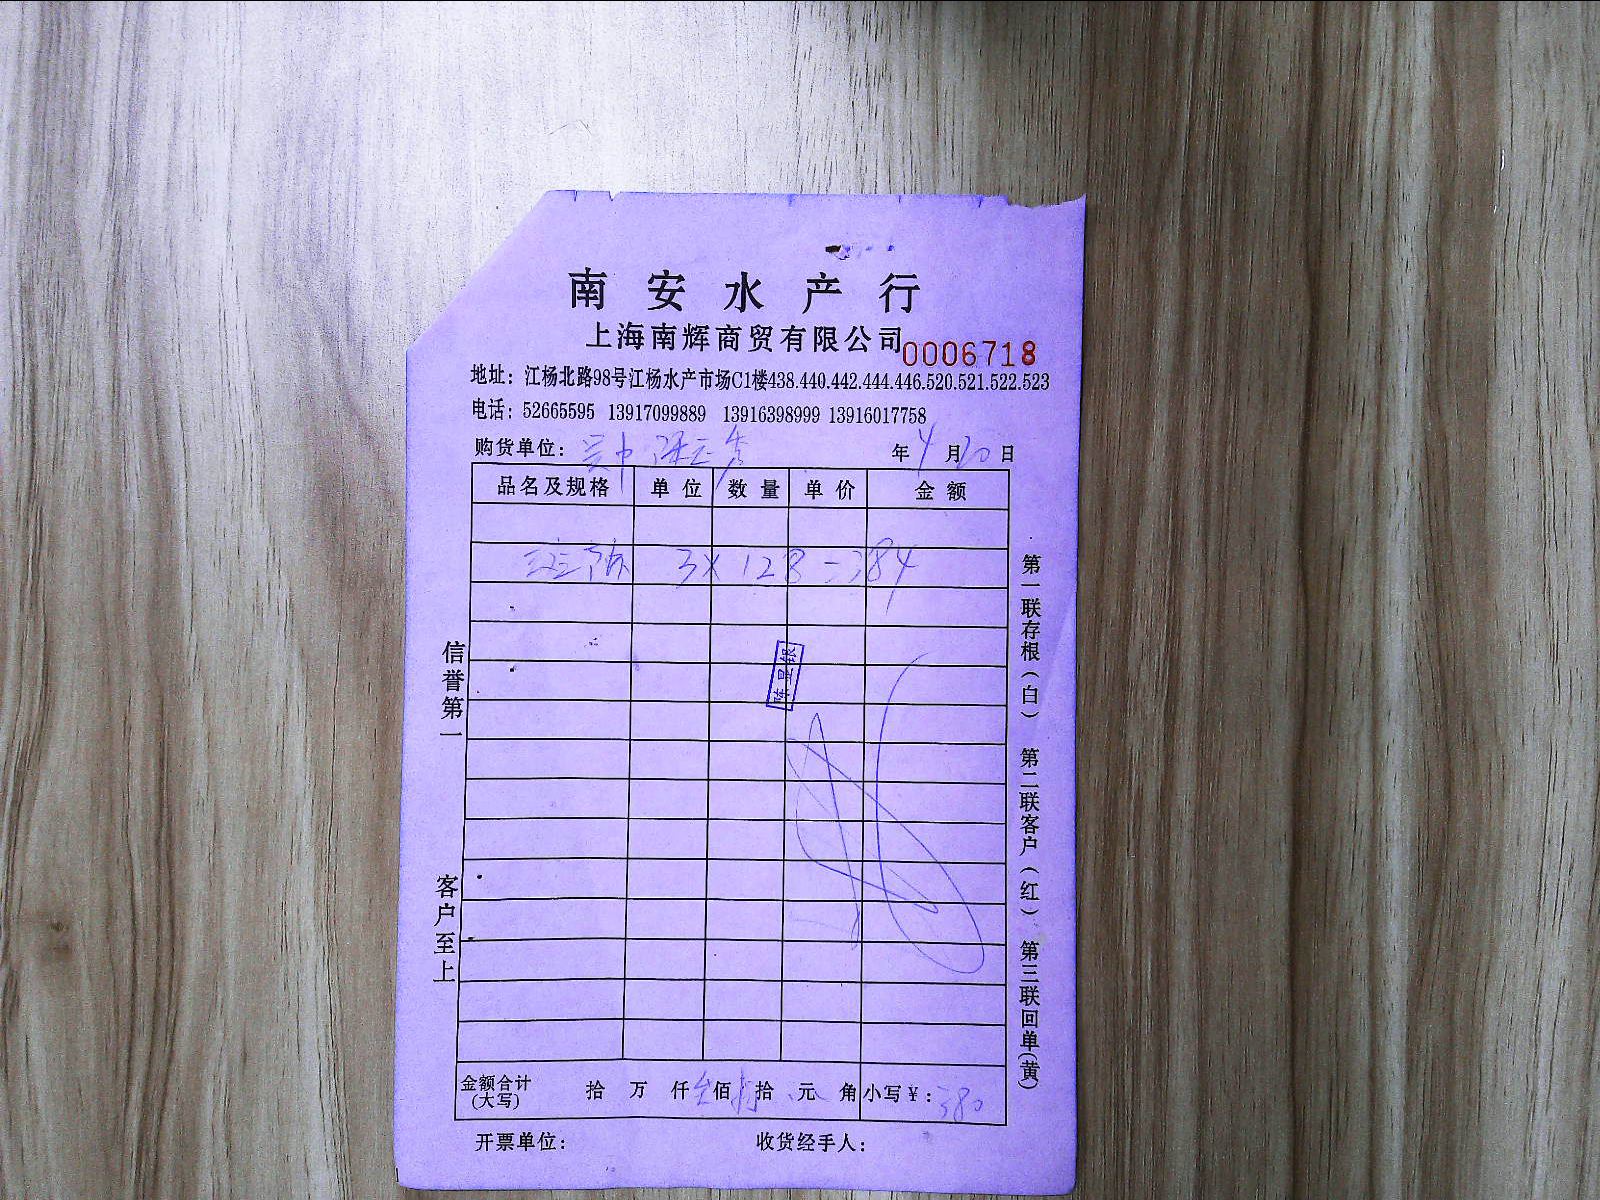 南安水产行
上海南辉商贸有限公司
0006718
地址：江杨北路98号江杨水产市场C1楼438.440.442.444.446.520.521.522.523
电话：52665595 13917099889 13916398999 13916017758
购货单位： 年 4 月 20 日
品名及规格 单位 数量 单价 金额
3×128=384
陈显银
信誉第一
客户至上
第一联存根（白） 第二联客户（红） 第三联回单(黄)
金额合计 拾 万 仟 佰 拾 元 角 小写￥：380
(大写)
开票单位： 收货经手人：